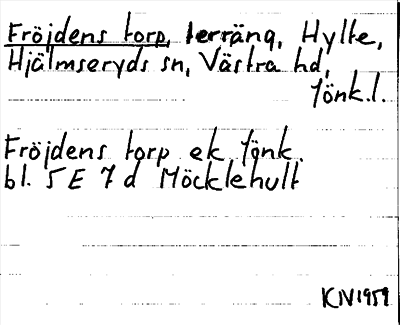 Fröjdens torp, terräng, Hylte,
Hjälmseryds sn, Västra hd,
Jönk.l.
Fröjdens torp ek Jönk.
bl. 5 E 7 d Möcklehult
KN1959